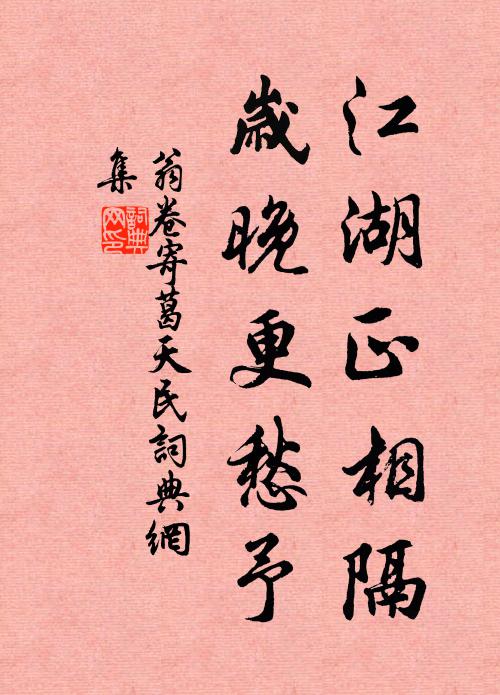 江湖正相隔
歲晚更愁予
翁卷寄葛天民詞典網
集
詞典
网印